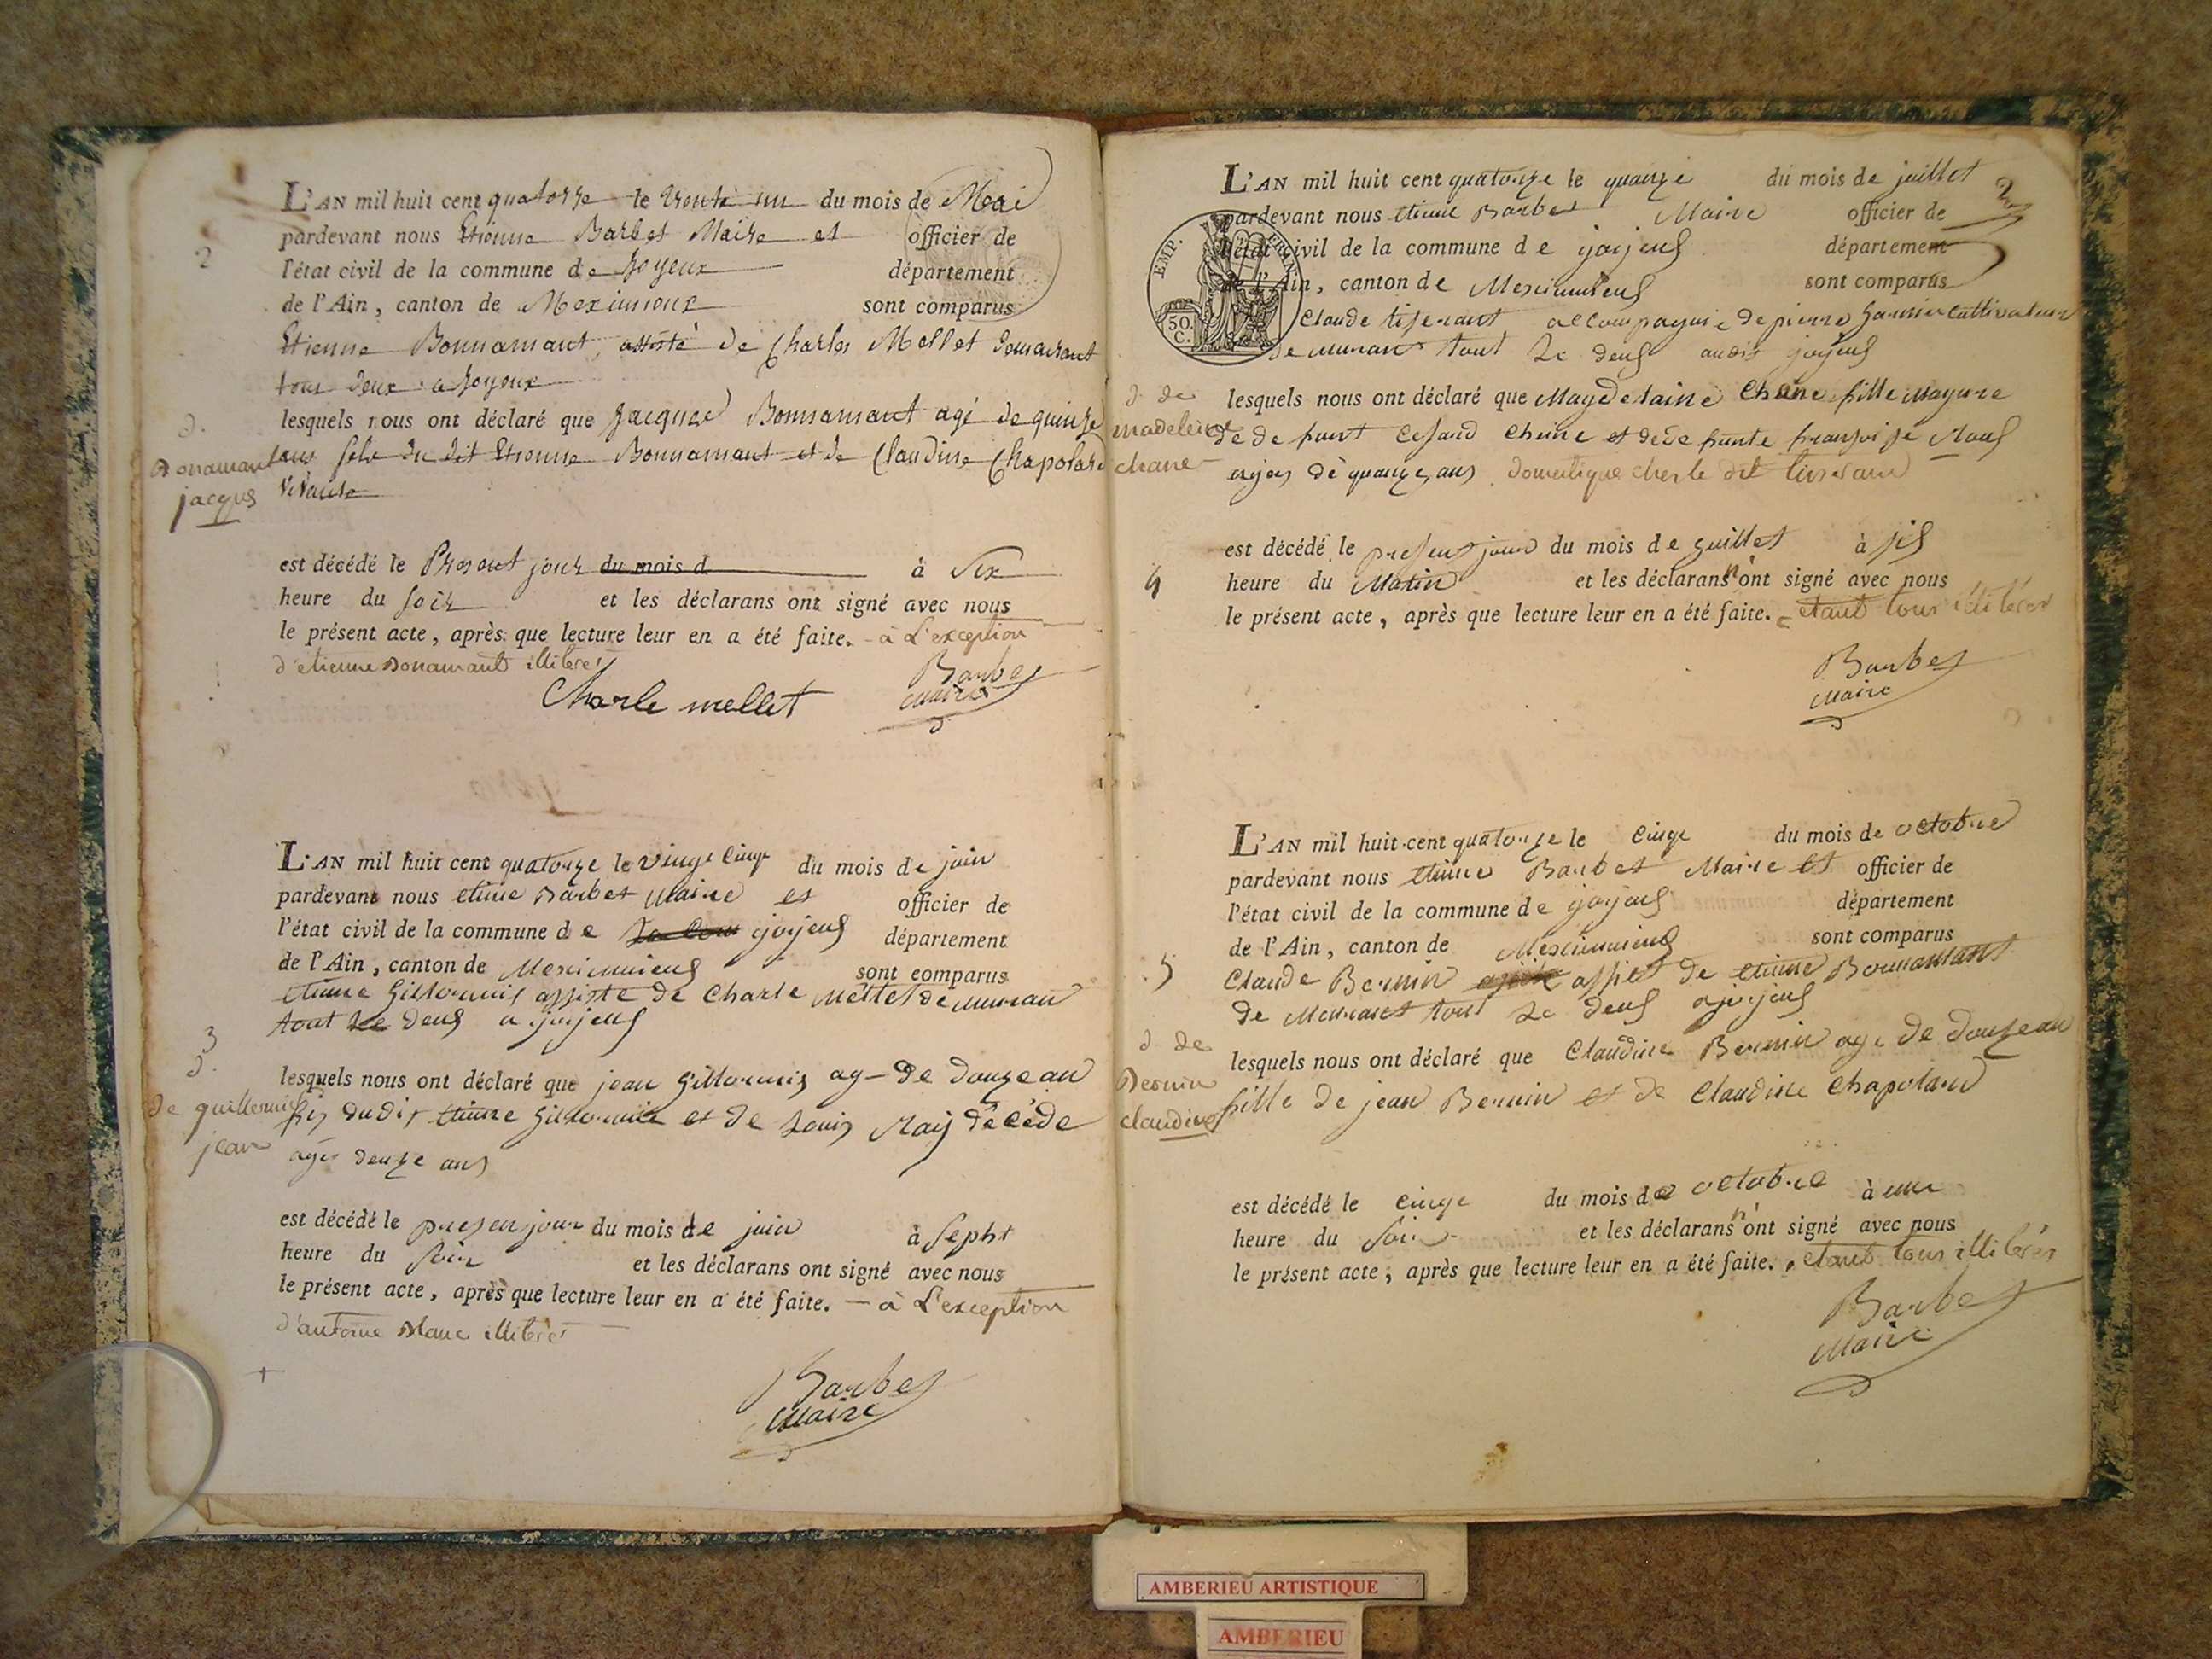 L'AN mil huit cent quatorze le trente un du mois de Mai
pardevant nous Etienne Barbet Maire et officier de
2
l'état civil de la commune de Joyeux département
de l'Ain, canton de Meximieux sont comparus
Etienne Bonnamant assisté de Charles Mellet demeurant
tous deux a Joyeux
lesquels nous ont déclaré que Jacques Bonnamant agé de quinze
d.
Bonamant
jacques
ans fils du dit Etienne Bonnamant et de Claudine Chapolard
vivante
est décédé le Present jour du mois d à Six
heure du soir et les déclarans ont signé avec nous
le présent acte, après que lecture leur en a été faite. - à L'exception
d'etienne Bonamant illiterés
Charle mellet
Barbet
Maire
L'AN mil huit cent quatorze le vingt cinqe du mois de juin
pardevant nous etiene Barbet Maire et officier de
l'état civil de la commune de joyeus département
de l'Ain, canton de Meximieus sont comparus
etiene Gillermis assiste de Charle Mellet de Muran
tout Le deus a joyeus
3
d.
de guillermis
jean
lesquels nous ont déclaré que jean Gillermis ag- De douze an
fis dudit etiene Gillermis et De Louis Ray décéde
agés deuze ans
est décédé le presen jour du mois de juin à Sepht
heure du soir et les déclarans ont signé avec nous
le présent acte, après que lecture leur en a été faite. - à L'exception
d'antoine Blanc illiterés
Barbet
Maire
L'AN mil huit cent quatorze le quanze du mois de juillet
2
pardevant nous etiene Barbet Maire officier de
l'état civil de la commune de joyeus département
de l'Ain, canton de Meximieus sont comparus
EMP. FRAN.
50. C.
Claude tiserant accompagnie de pierre Garnier cultivateur
de muran tout Le deus audis joyeus
d. de
madeleine
chane
lesquels nous ont déclaré que Maydelaine Chane fille mayure
de de funt Cesard Chene et dede funte fransoise Rous
agés de quanze ans domestique chez le dit tisserand
est décédé le presens jour du mois de guillet à sis
4
heure du Matin et les déclarans n'ont signé avec nous
le présent acte, après que lecture leur en a été faite. etant tous illiterés
Barbet
Maire
L'AN mil huit cent quatorze le cinqe du mois de octobre
pardevant nous etiene Barbet Maire et officier de
l'état civil de la commune de joyeus département
de l'Ain, canton de Meximieus sont comparus
5
Claude Bernin assist de etiene Bonnamant
de Meurant tout Le deus a joyeus
d. de
Bernin
claudine
lesquels nous ont déclaré que Claudine Bernin age de douze an
fille de jean Bernin et de Claudine Chapolard
est décédé le cinqe du mois de octobre à une
heure du soir et les déclarans n'ont signé avec nous
le présent acte, après que lecture leur en a été faite. etant tous illiterés
Barbet
Maire
AMBERIEU ARTISTIQUE
AMBERIEU